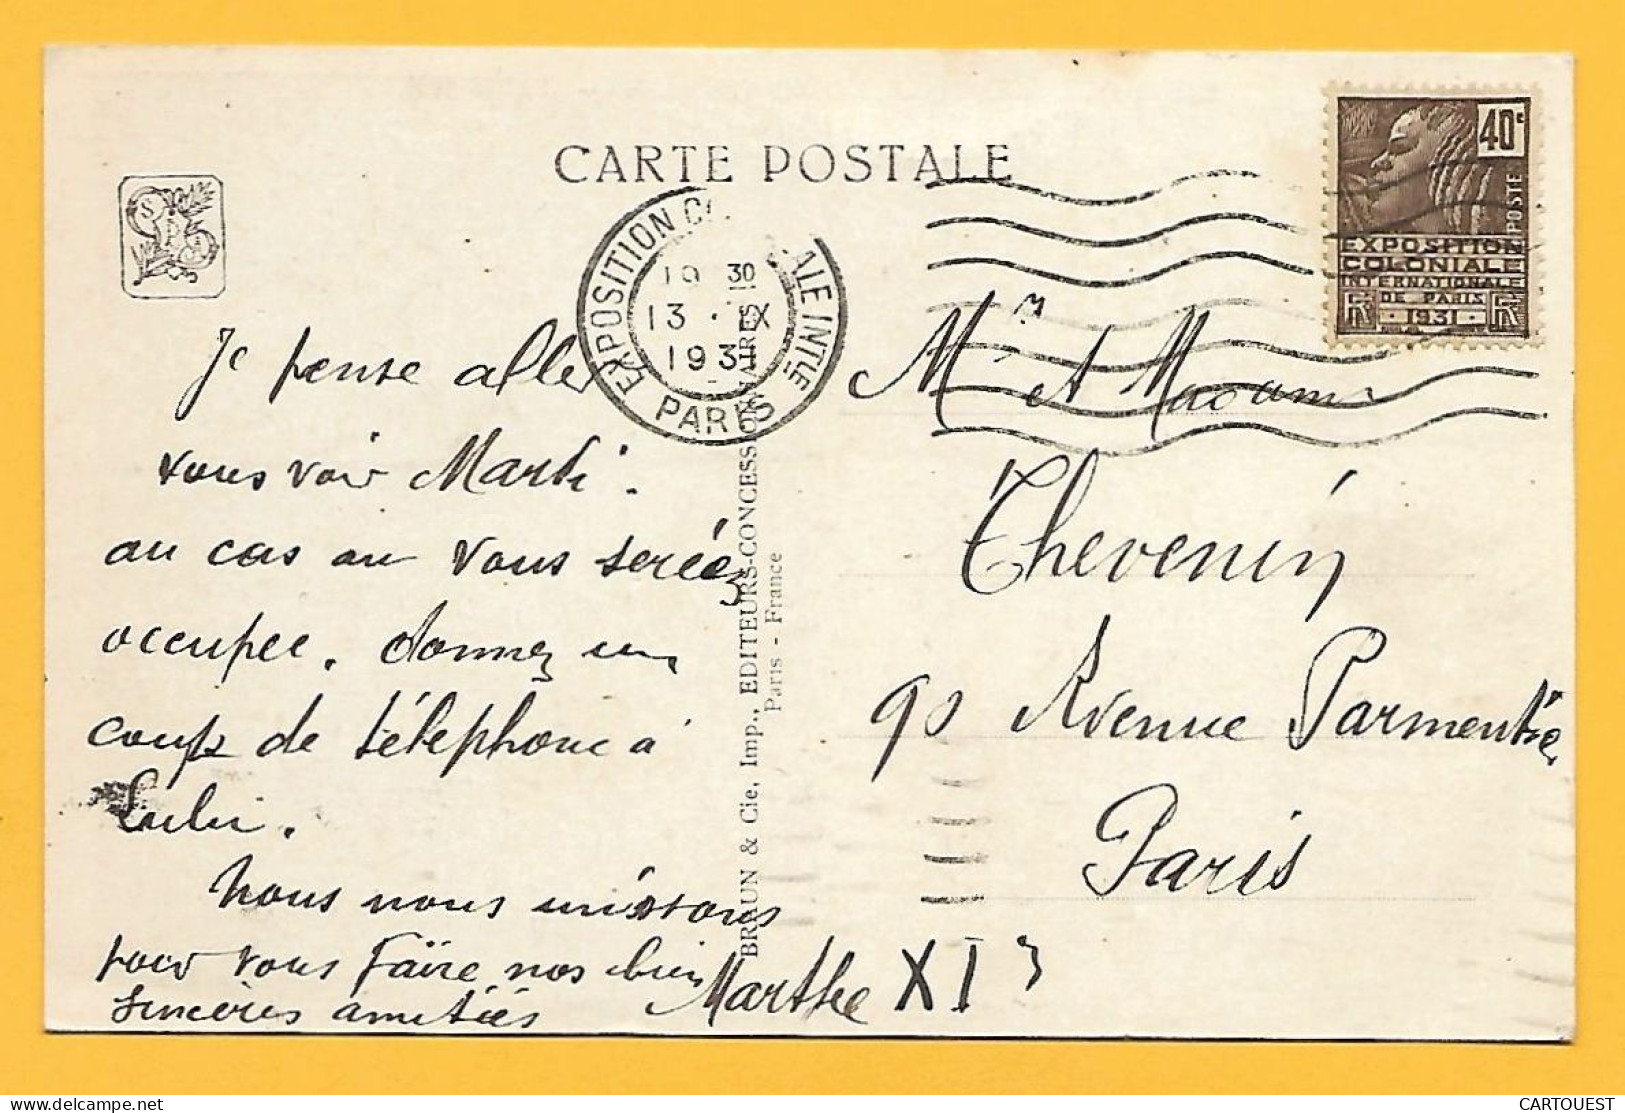 CARTE POSTALE
EXPOSITION C ALE INTle
PARIS
19 30
13 · IX
1931
40c
POSTE
EXPOSITION
COLONIALE
INTERNATIONALE
DE PARIS
RF · 1931 · RF
Je pense aller
vous voir Mardi.
au cas au vous seréez
occupée. donnez un
coup de téléphone à
Lulu.
nous nous unissons
pour vous faïre nos bien
sincères amitiées Marthe XI
Mr et Madame
Thevenin
90 Avenue Parmentier
Paris
BRAUN & Cie, Imp., EDITEURS-CONCESSIONNAIRES
Paris - France
delcampe.net
CARTOUEST